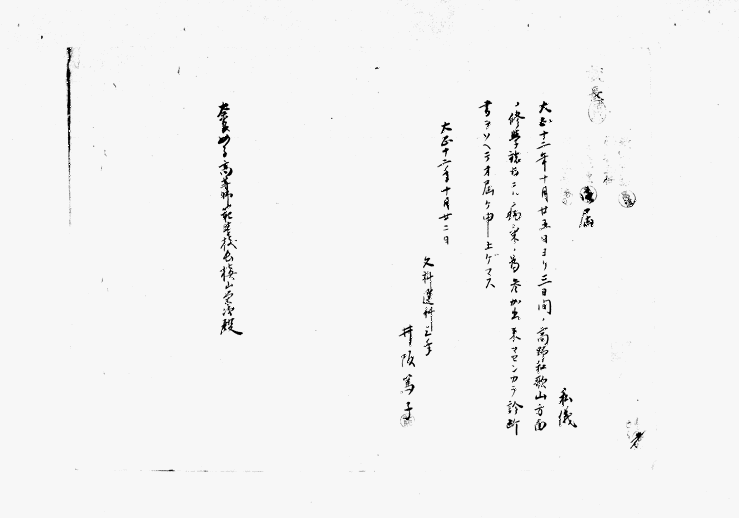 届
私儀
大正十二年十月廿五日ヨリ三日間ノ高野和歌山方面
ノ修學旅行ニハ病氣ノ為参加出来マセンカラ診断
書ヲソヘテオ届ケ申上ゲマス
大正十二年十月廿二日
文科選科三年
井阪篤子
奈良女子高等師範學校長槇山栄次殿